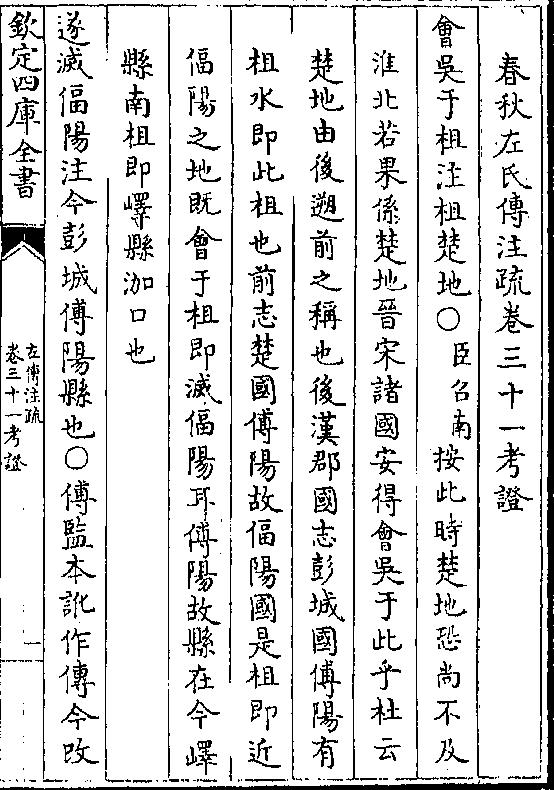 春秋左氏傳注疏卷三十一考證
會吳于柤注柤楚地○臣召南按此時楚地恐尚不及
淮北若果係楚地晉宋諸國安得會吳于此乎杜云
楚地由後遡前之稱也後漢郡國志彭城國傅陽有
柤水即此柤也前志楚國傅陽故偪陽國是柤即近
偪陽之地既會于柤即滅偪陽耳傅陽故縣在今嶧
縣南柤即嶧縣泇口也
遂滅偪陽注今彭城傅陽縣也○傅監本訛作傳今改
欽定四庫全書
左傳注疏
卷三十一考證
一